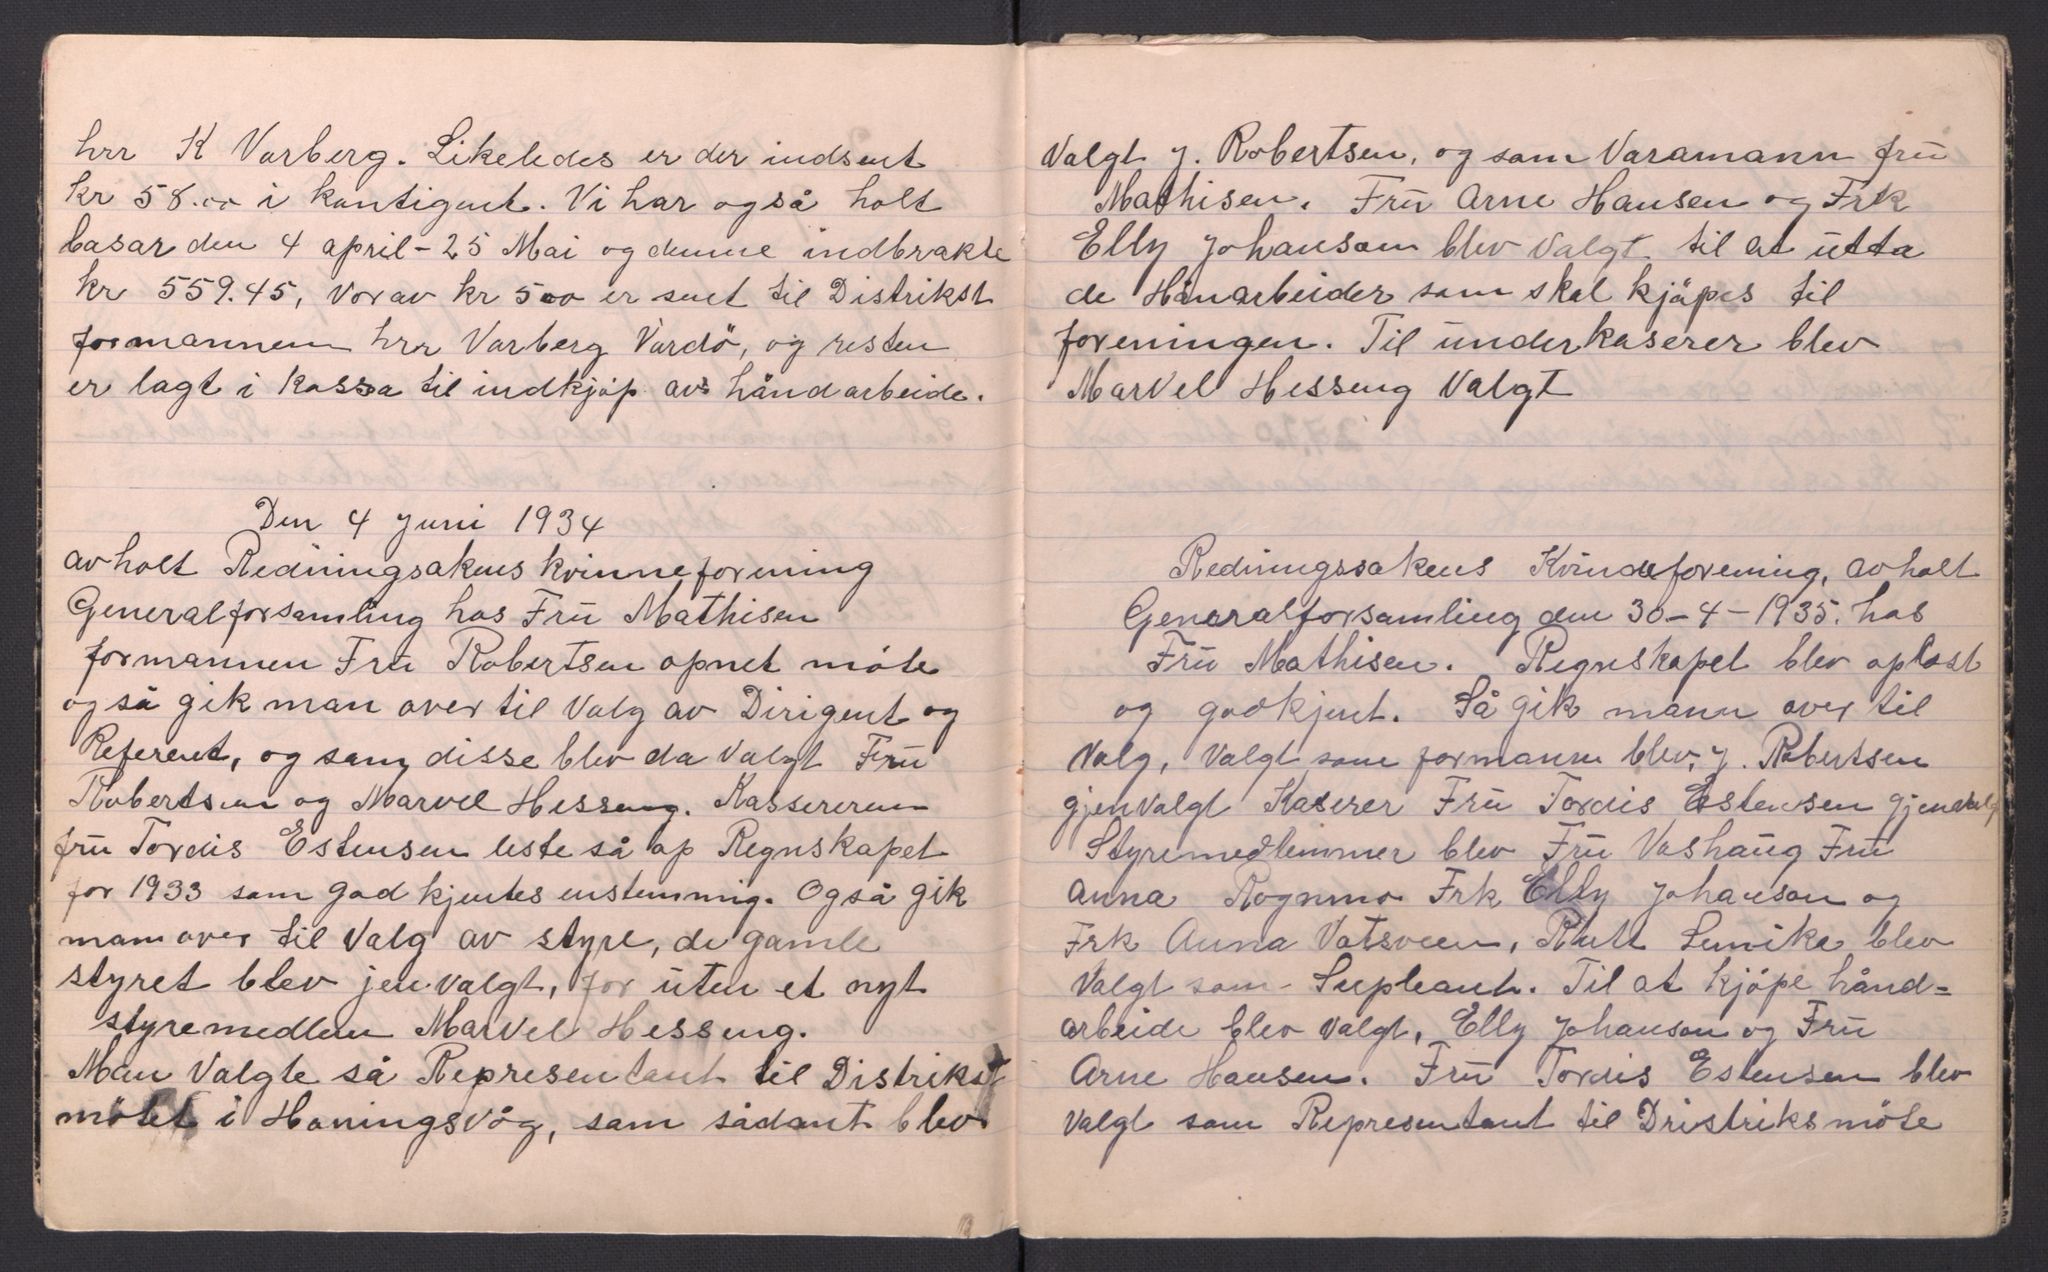 hrr K Varberg. Likeledes er der indsent
kr 58.00 i kontigent. Vi har også holt
basar den 4 april - 25 Mai og denne indbrakte
kr 559.45, vorav kr 500 er sent til Distrikst
formannen hrr Varberg Vardö, og resten
er lagt i Kassa til indkjöp avs håndarbeide.
Den 4 Juni 1934
avholt Redningsakens kvinneforening
Generalforsamling hos Frü Mathisen
formannen Frü Robertsen opnet möte
og så gik man over til Valg av Dirigent og
Referent, og som disse blev da Valgt Frü
Robertsen og Marvel Hesseng. Kassereren
frü Tordis Estensen leste så op Regnskapet
for 1933 som godkjentes enstemmig. Også gik
mam over til Valg av styre, de gamle
styret blev jenvalgt, for üten et nyt
styremedlem Marvel Hesseng.
Man Valgte så Representant til Distrikst
mötet i Honingsvåg, som sådant blev
Valgt J. Robertsen, og som Varamann frü
Mathisen. Frü Arne Hansen og Frk
Elly Johanson blev Valgt til at ütta
de Hånarbeider som skal kjöpes til
foreningen. Til ünderkaserer blev
Marvel Hesseng Valgt
Redningssakens Kvindeforening, avholt
Generalforsamling den 30-4-1935. hos
Frü Mathisen. Regnskapet blev oplast
og godkjent. Så gik mann over til
Valg, Valgt som formann blev, J. Robertsen
gjenvalgt Kaserer Frü Tordis Estensen gjenvalgt
Styremedlemmer blev Frü Vashaüg Frü
Anna Rognmo Frk Elly Johanson og
Frk Anna Vatsveen, Rutt Lenika blev
Valgt som Supleant. Til at kjöpe hånd=
arbeide blev valgt, Elly Johanson og Frü
Arne Hansen. Frü Tordis Estensen blev
valgt som Representant til Dristriksmöte